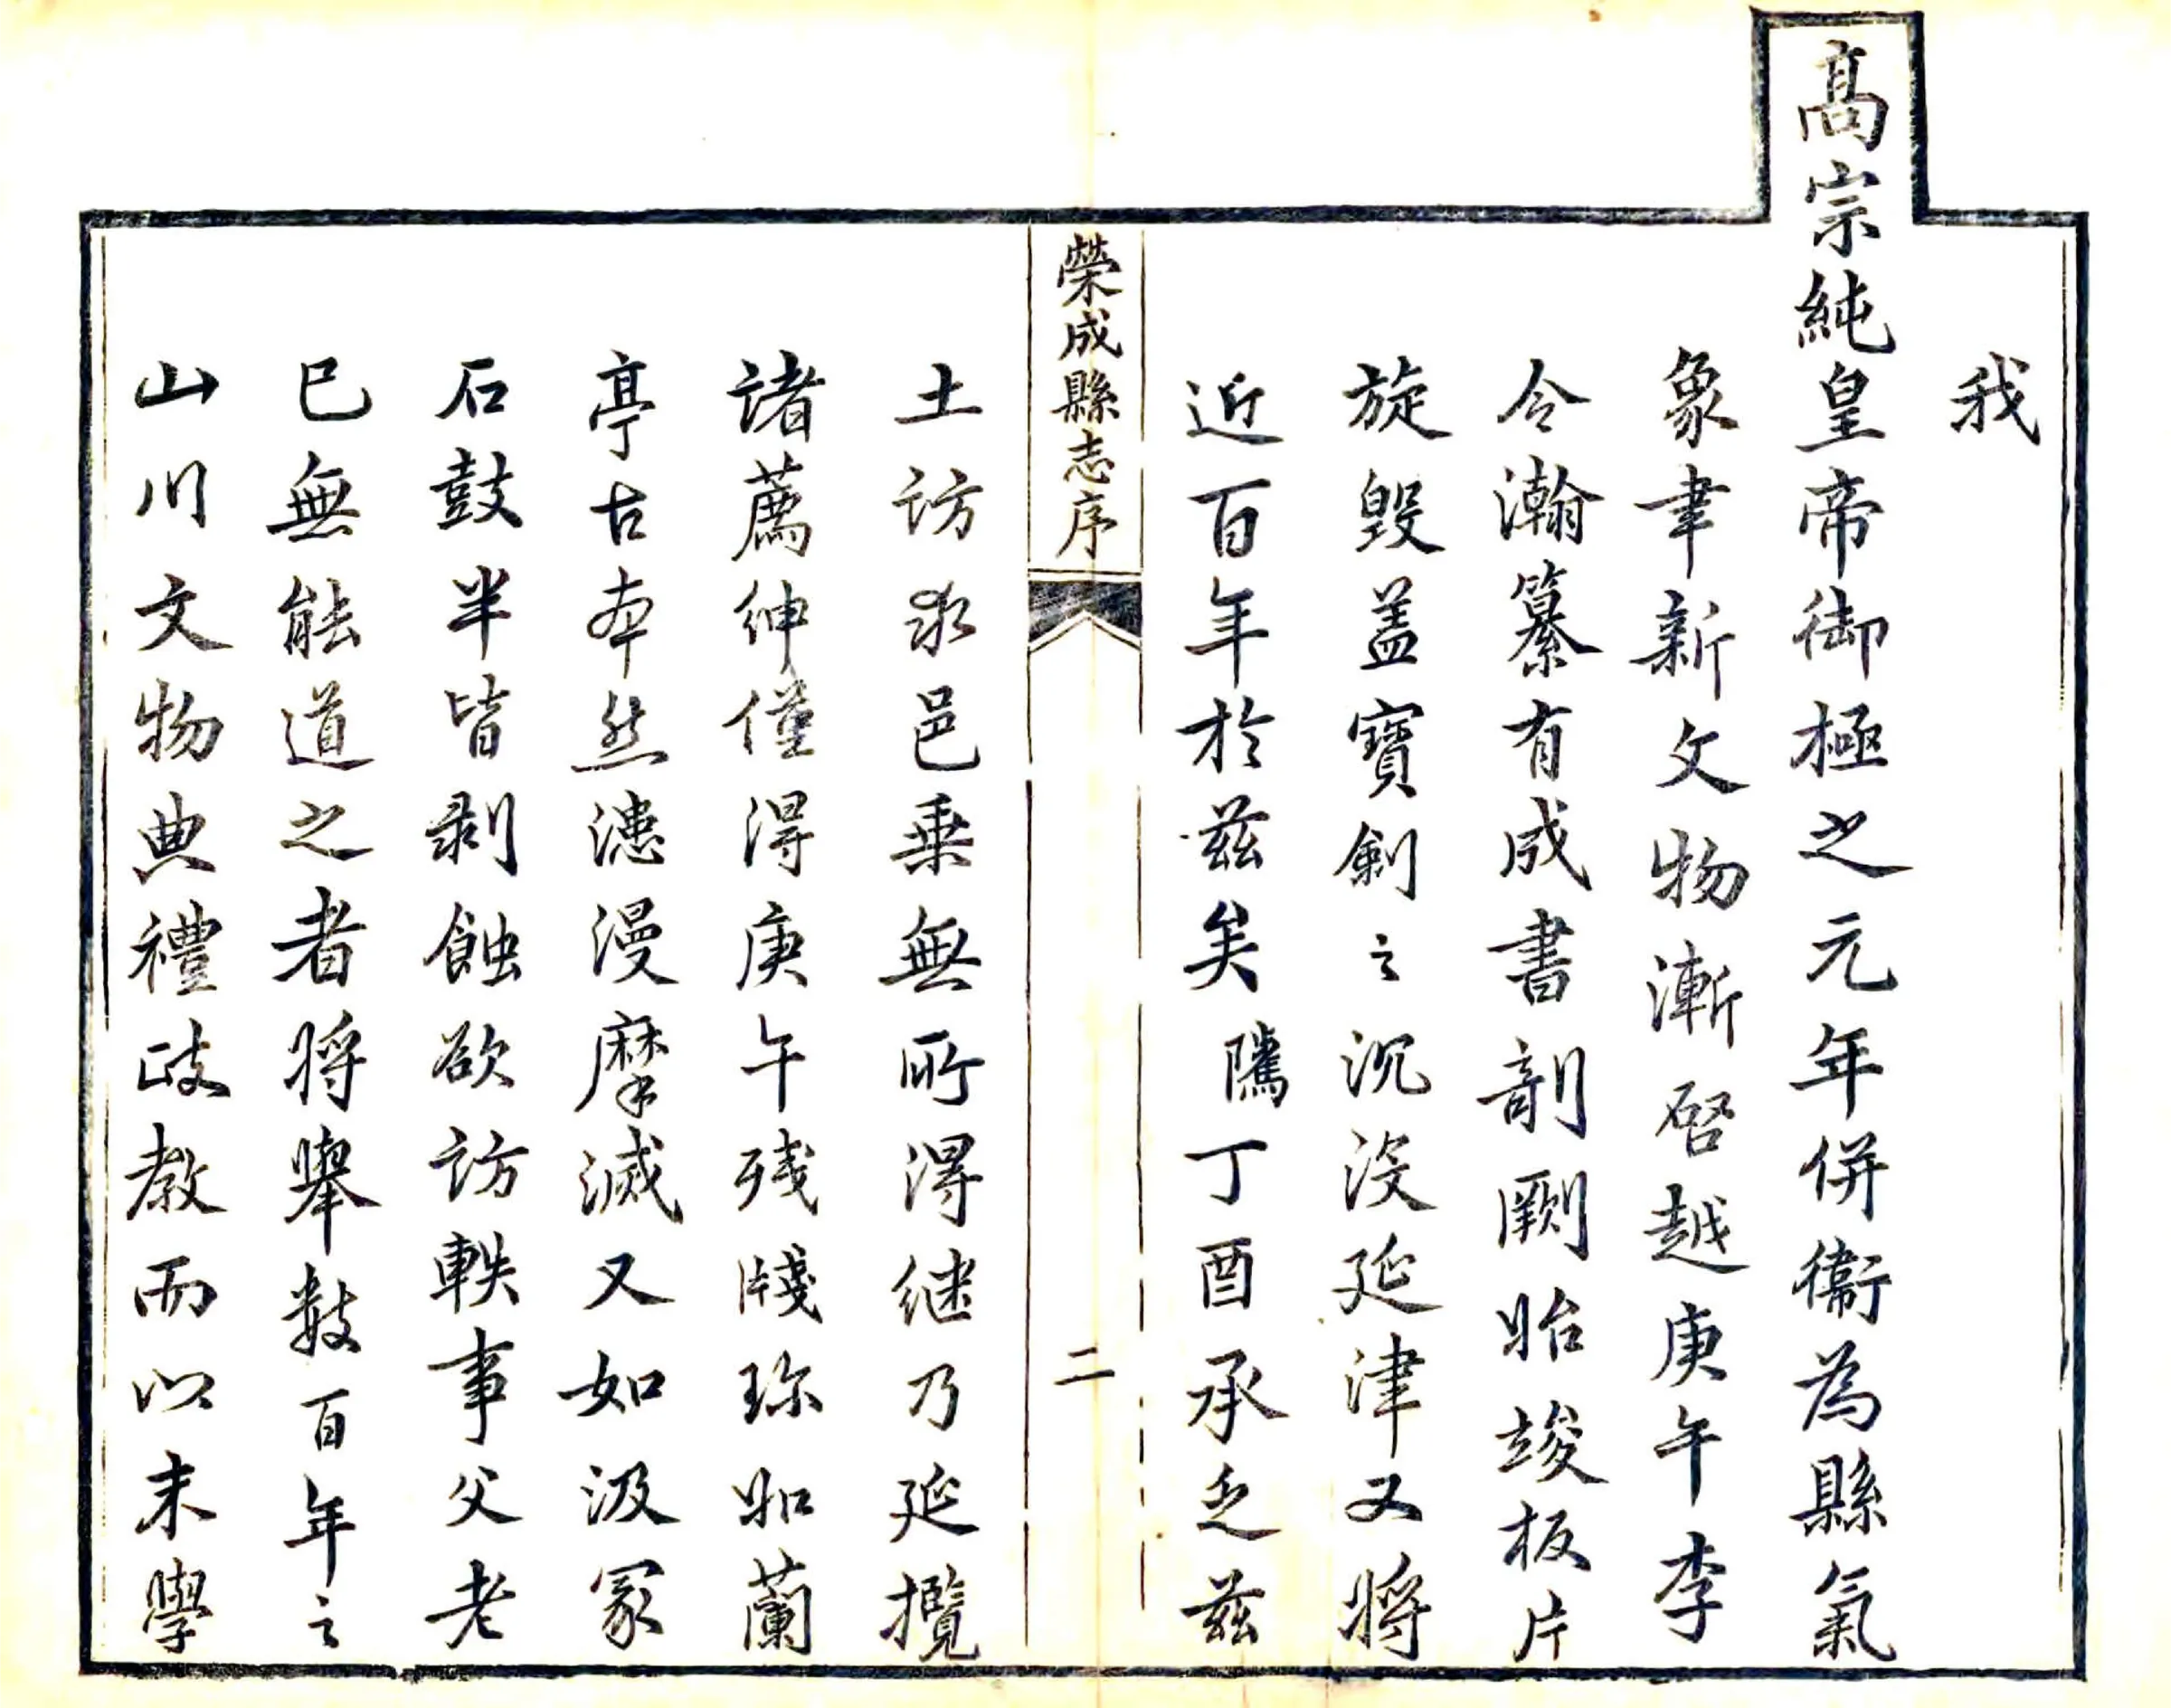 我
髙宗純皇帝御極之元年併衞為縣氣
象聿新文物漸啓越庚午李
令瀚纂有成書剞劂貽竣板片
旋毀葢寶劍之沉没延津又將
近百年於兹矣隲丁酉承乏兹
榮成縣志序
二
土訪求邑乗無所得継乃延攬
諸薦紳僅得庚午残牋珎如蘭
亭古本然漶漫摩滅又如汲冢
石鼓半皆剥蝕欲訪軼事父老
已無能道之者将舉数百年之
山川文物典禮政教而以末學